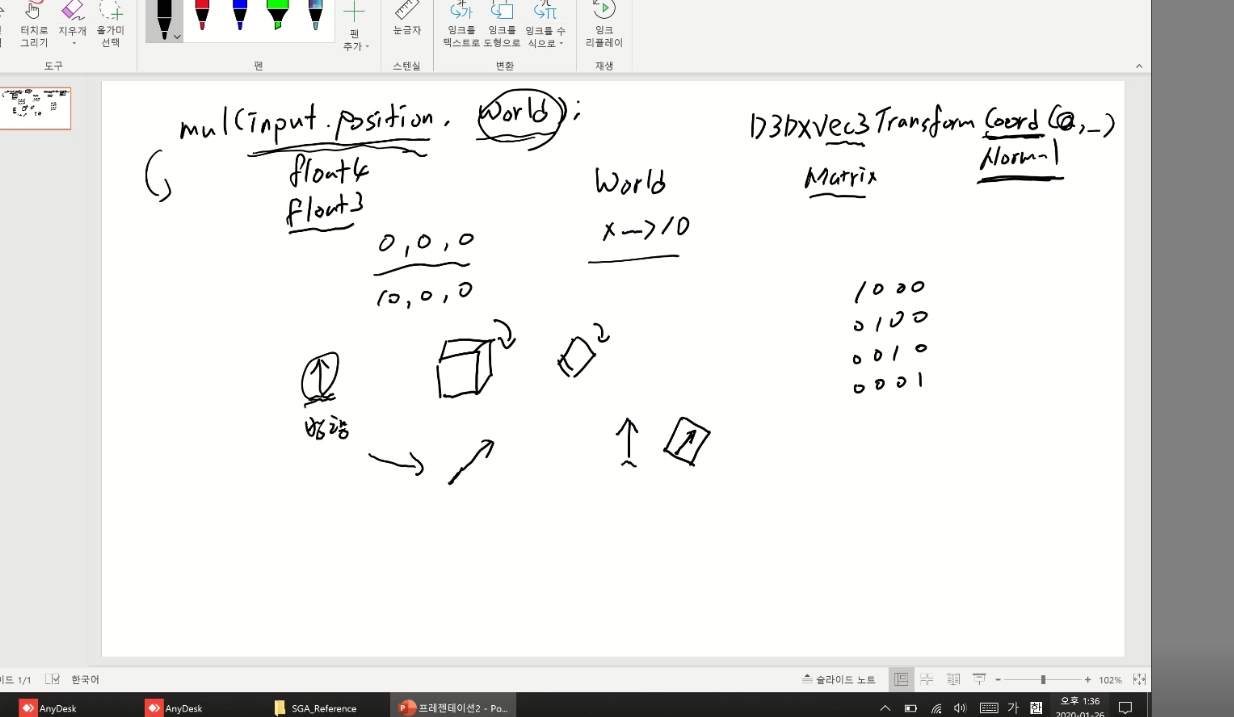 터치로 그리기
지우개
올가미 선택
펜 추가
눈금자
잉크를 텍스트로
잉크를 도형으로
잉크를 수식으로
잉크 리플레이
도구
펜
스텐실
변환
재생
mul(input.position, World);
float4
float3
0, 0, 0
10, 0, 0
World
x -> 10
D3DXVec3TransformCoord(@, _)
Matrix
Normal
1 0 0 0
0 1 0 0
0 0 1 0
0 0 0 1
이드 1/1
한국어
슬라이드 노트
102%
AnyDesk
AnyDesk
SGA_Reference
프레젠테이션2 - Po...
가
한
오후 1:36
2020-01-26